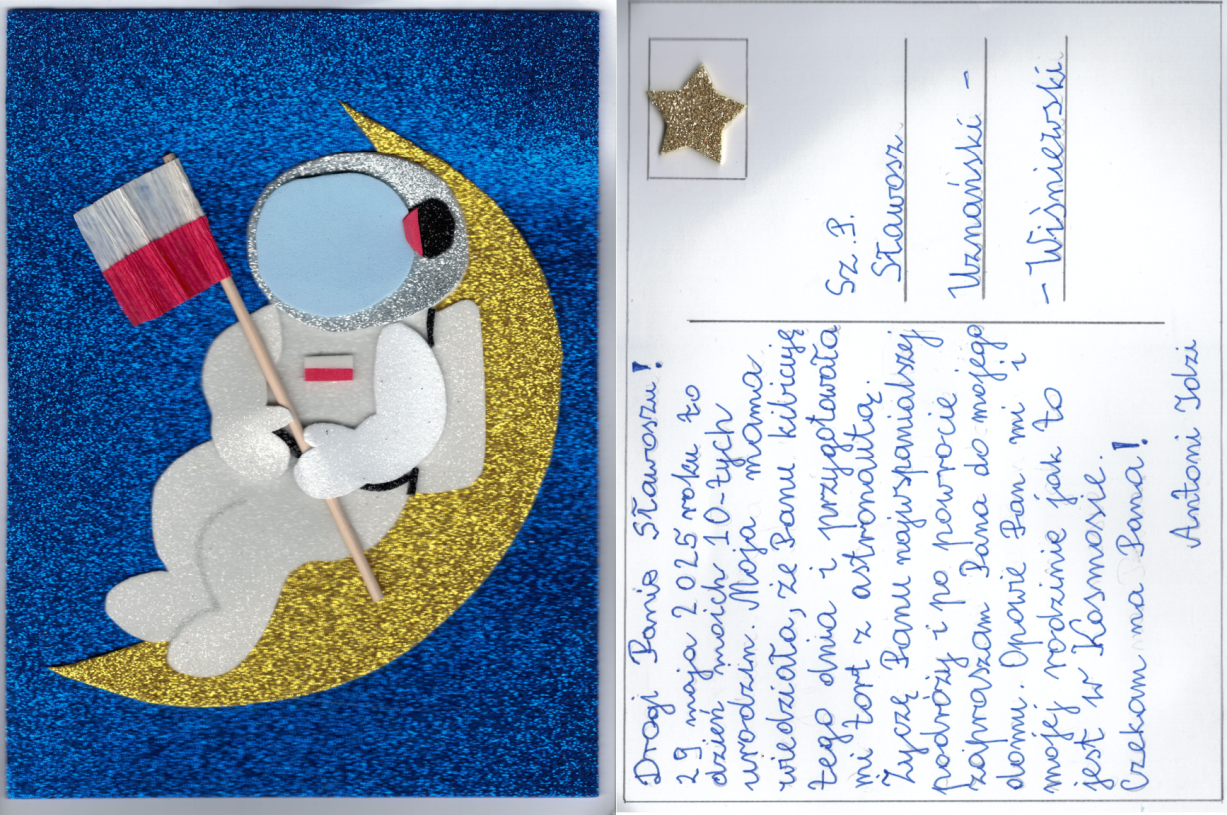 Drogi Panie Sławoszu!
29 maja 2025 roku to
dzień moich 10-tych
urodzin. Moja mama
wiedziała, że Panu kibicuję
tego dnia i przygotowała
mi tort z astronautą.
Życzę Panu najwspanialszej
podróży i po powrocie
zapraszam Pana do mojego
domu. Opowie Pan mi i
mojej rodzinie jak to
jest w Kosmosie.
Czekam na Pana!
Antoni Idzi
Sz. P.
Sławosz
Uznański -
- Wiśniewski